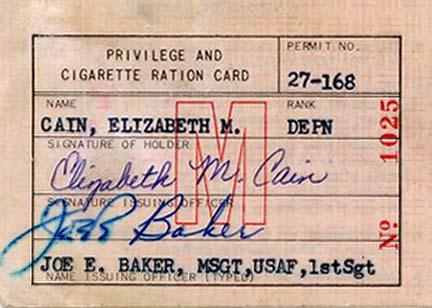 PRIVILEGE AND
CIGARETTE RATION CARD
PERMIT NO.
27-168
NAME
RANK
CAIN, ELIZABETH M.
DEPN
SIGNATURE OF HOLDER
Elizabeth M. Cain
M
SIGNATURE ISSUING OFFICER
Joe E. Baker
JOE E. BAKER, MSGT,USAF,1stSgt
NAME ISSUING OFFICER (TYPED)
No 1025